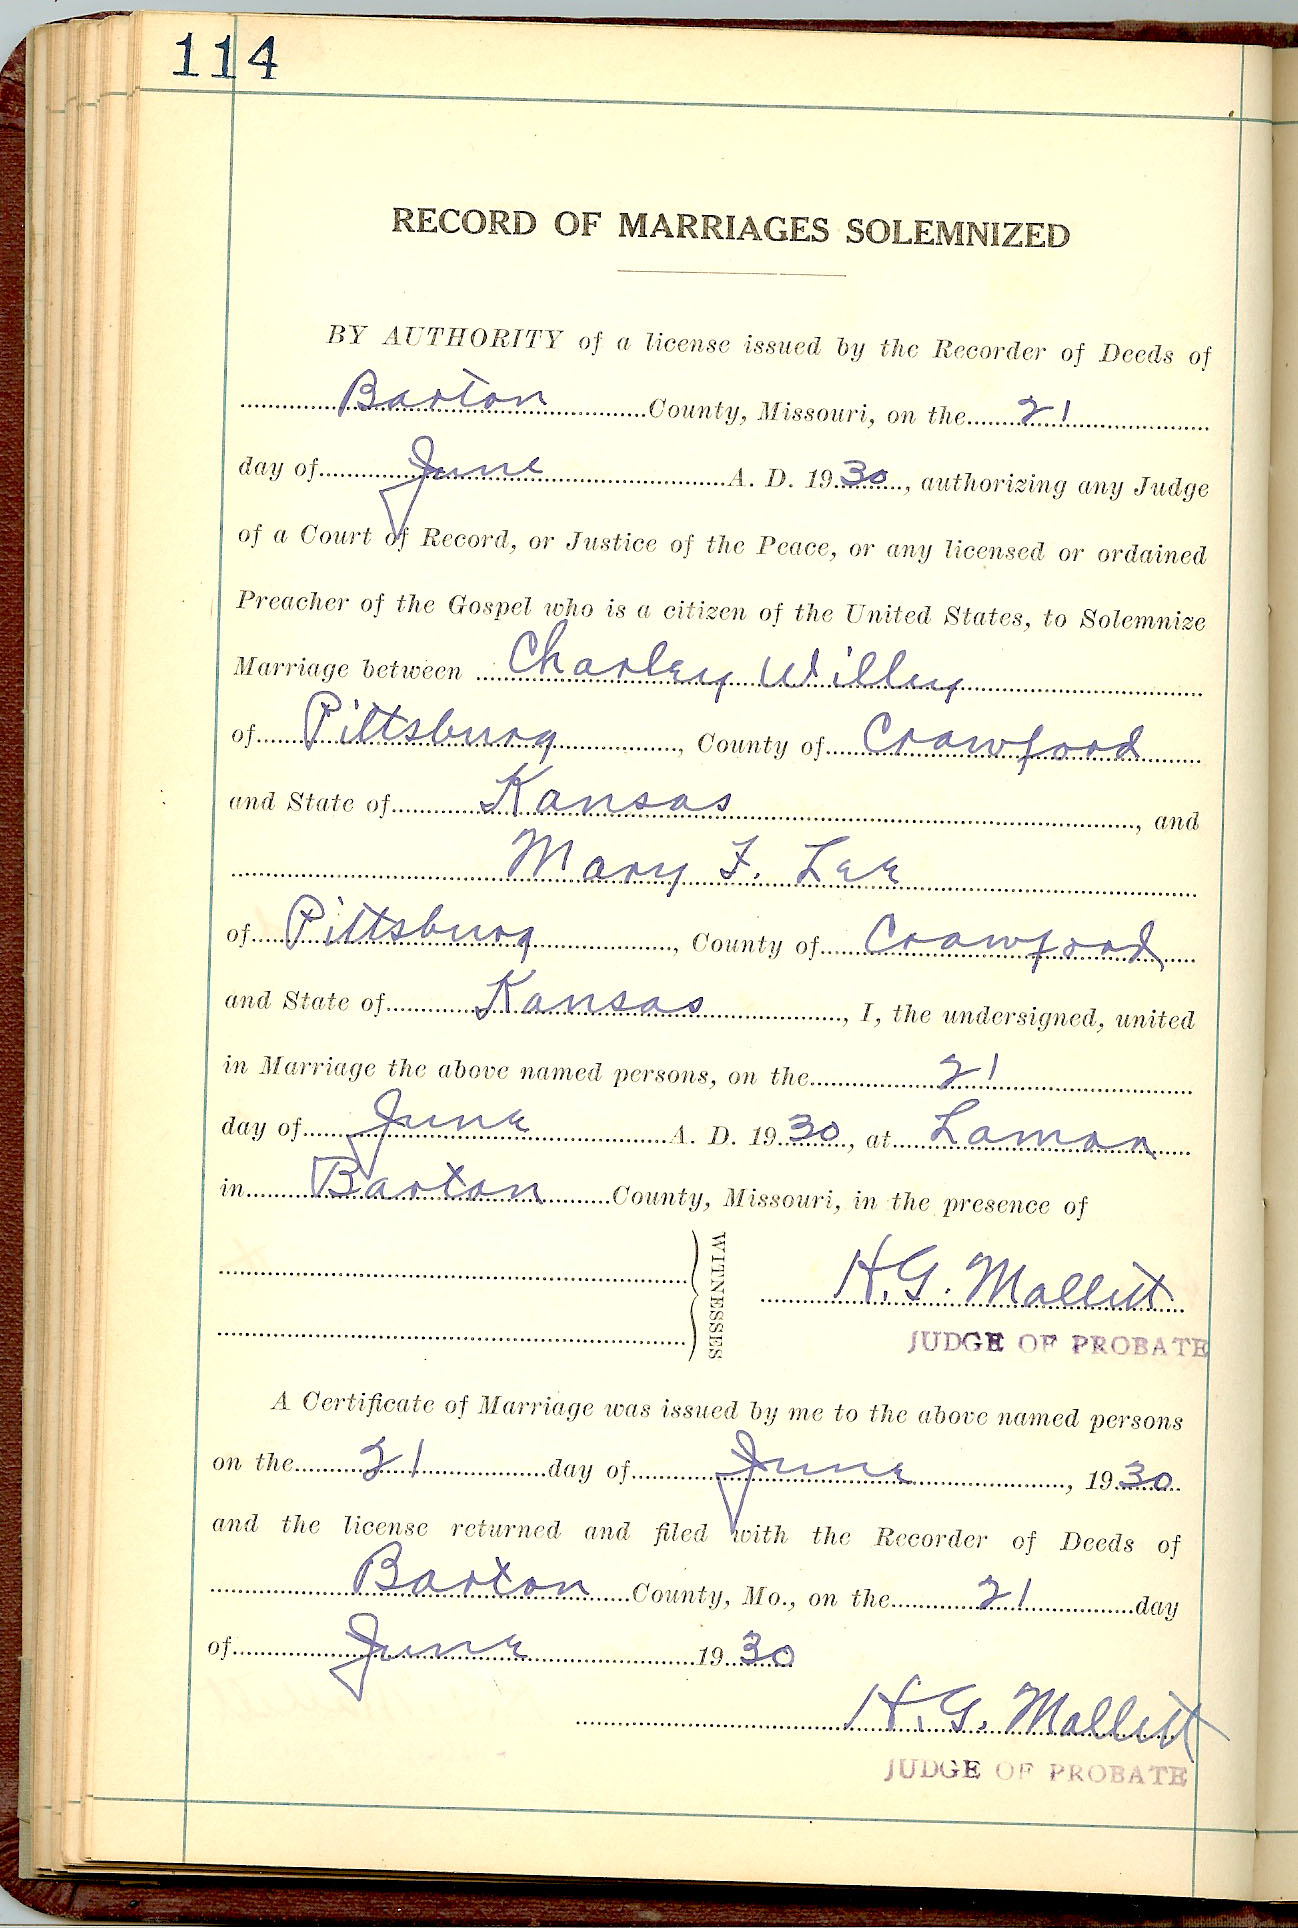 114
RECORD OF MARRIAGES SOLEMNIZED
BY AUTHORITY of a license issued by the Recorder of Deeds of
Barton County, Missouri, on the 21
day of June A. D. 1930, authorizing any Judge
of a Court of Record, or Justice of the Peace, or any licensed or ordained
Preacher of the Gospel who is a citizen of the United States, to Solemnize
Marriage between Charley Willey
of Pittsburg, County of Crawford
and State of Kansas, and
Mary F. Lee
of Pittsburg, County of Crawford
and State of Kansas, I, the undersigned, united
in Marriage the above named persons, on the 21
day of June A. D. 1930, at Lamar
in Barton County, Missouri, in the presence of
WITNESSES
H. G. Mallett
JUDGE OF PROBATE
A Certificate of Marriage was issued by me to the above named persons
on the 21 day of June, 1930
and the license returned and filed with the Recorder of Deeds of
Barton County, Mo., on the 21 day
of June 1930
H. G. Mallett
JUDGE OF PROBATE